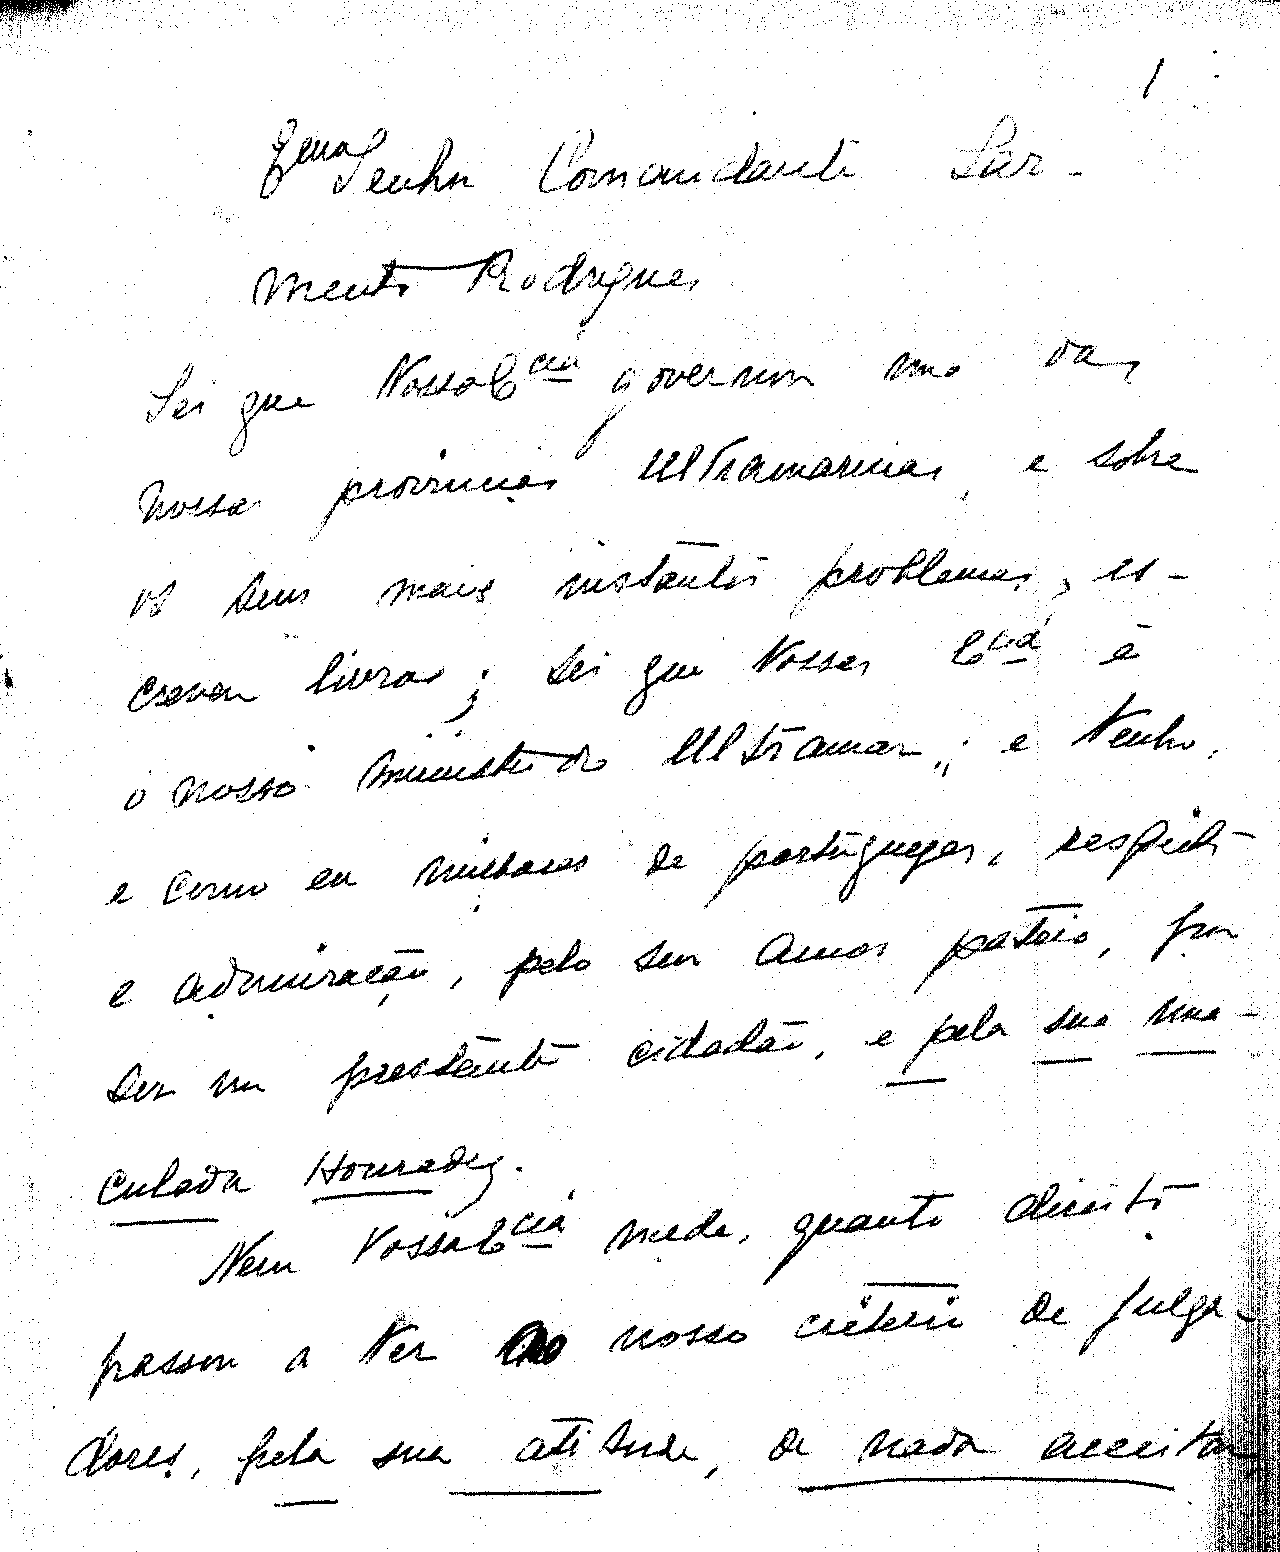 1
Exmo Senhor Comandante Sar-
mento Rodrigues
Sei que Vossa Ecia governou uma das
nossas provincias Ultramarinas, e sobre
os seus mais instantes problemas, es-
creveu livros; sei que Vossa Ecia é
o nosso ministro do Ultramar; e tenho,
e como eu milhares de portugueses, respeito
e admiração, pelo seu amor patrio, por
ser um prestante cidadão, e pela sua ima-
culada Honradez.
Nem Vossa Ecia mede, quanto direito
passou a ter ao nosso criterio de julga-
dores, pela sua atitude, de nada aceitar,